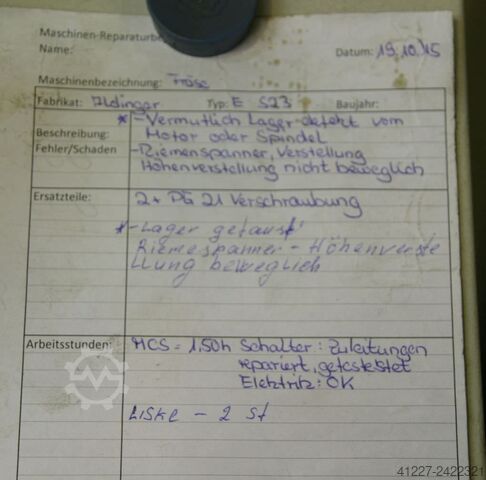 Maschinen-Reparaturbe
Name:
Datum: 19.10.15
Maschinenbezeichnung: Fräse
Fabrikat: Aldinger Typ: E S23 Baujahr:
* - Vermutlich Lager defekt vom
Beschreibung: Motor oder Spindel
Fehler/Schaden - Riemenspanner, Verstellung
Höhenverstellung nicht beweglich
Ersatzteile: 2x PG 21 Verschraubung
* - Lager getaust
Riemespanner - Höhenverste
llung beweglich
Arbeitsstunden: MCS = 1,50h Schalter: Zuleitungen
repariert, getestestet
Elektrik: OK
Liske - 2 St
41227-2422321